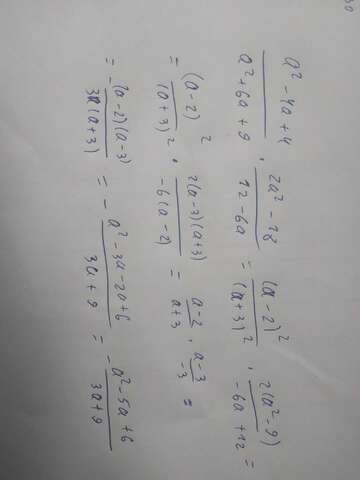 30
a² - 4a + 4 / a² + 6a + 9 · 2a² - 18 / 12 - 6a = (a - 2)² / (a + 3)² · 2(a² - 9) / -6a + 12 =
= (a - 2)² / (a + 3)² · 2(a - 3)(a + 3) / -6(a - 2) = a - 2 / a + 3 · a - 3 / -3 =
= - (a - 2)(a - 3) / 3(a + 3) = - a² - 3a - 2a + 6 / 3a + 9 = - a² - 5a + 6 / 3a + 9